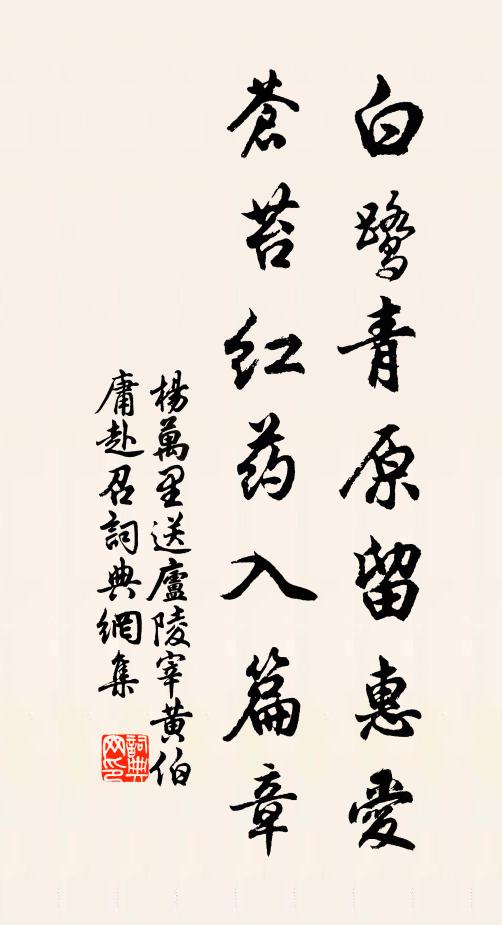 白鹭青原留惠愛
蒼苔红药入篇章
楊萬里送廬陵宰黄伯
庸赴召詞典網集
詞典
网印